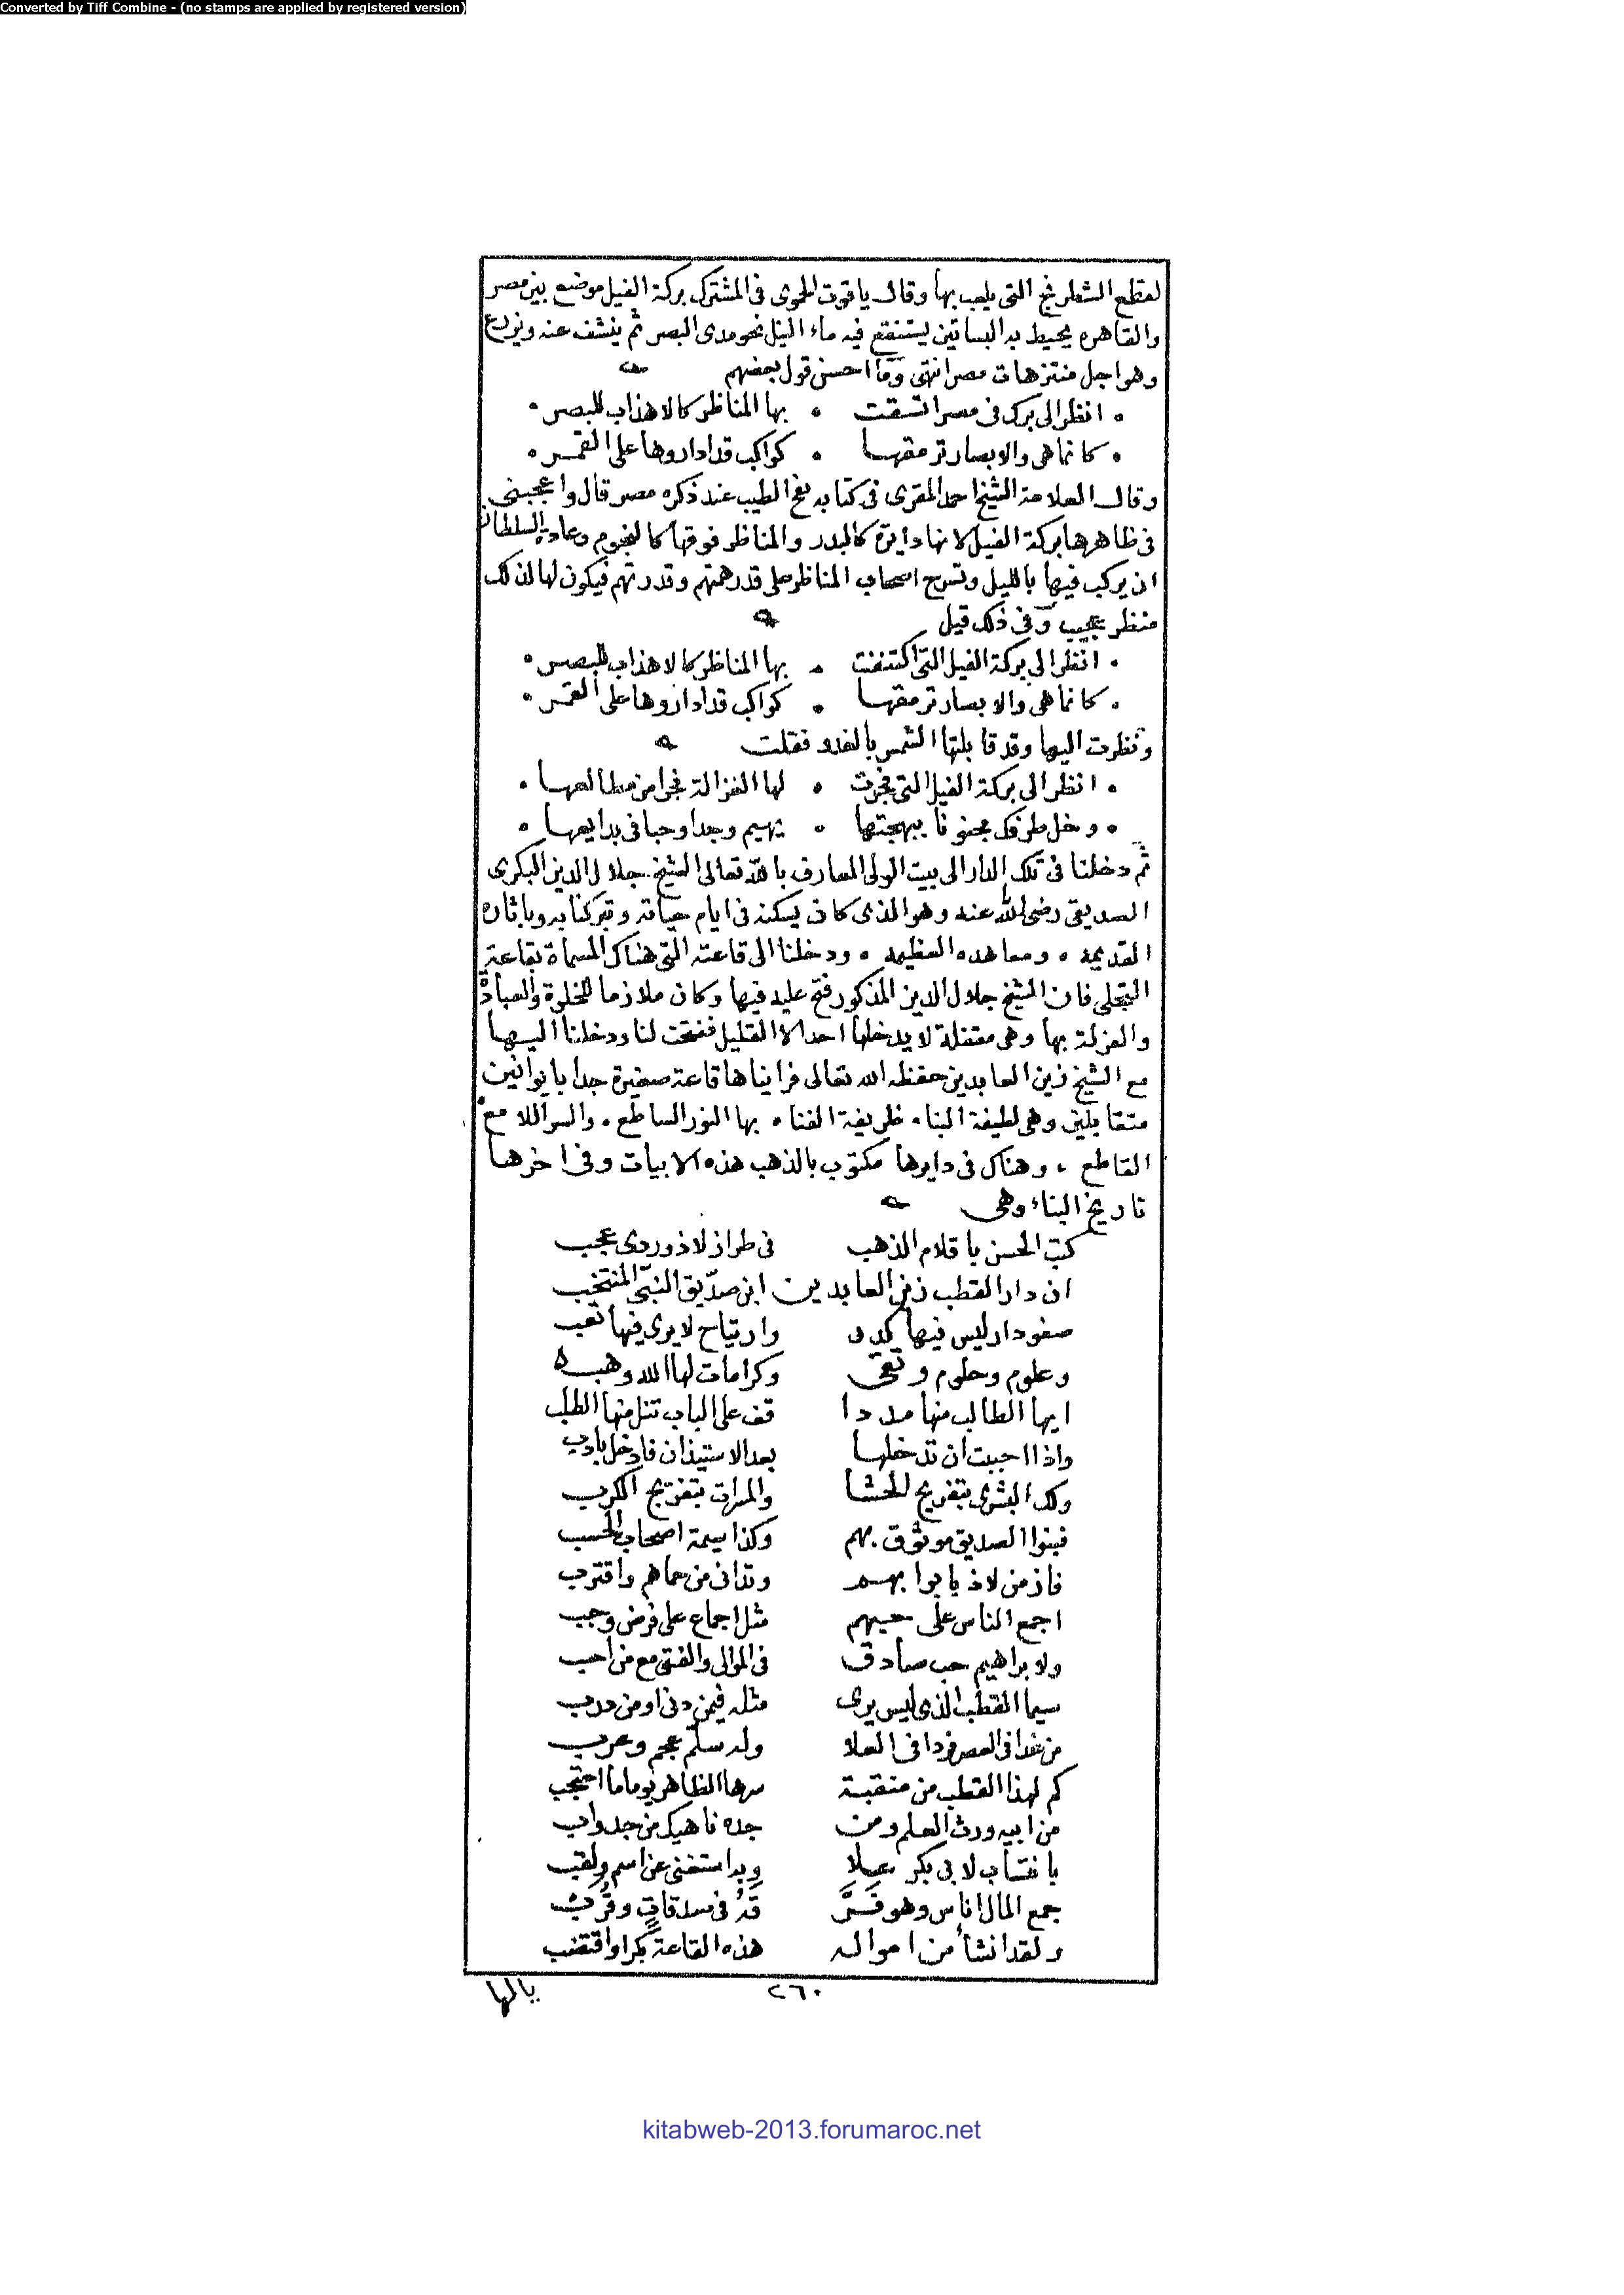 Converted by Tiff Combine - (no stamps are applied by registered version)
لقطع الشطرنج التى يلعب بها وقال ياقوت الحموى فى المشترك بركة الفيل موضع بين مصر
والقاهره يحيط به البساتين يستنقع فيه ماء النيل نحو مدى البصر ثم ينشف عنه ويزرع
وهو اجل منتزهات مصر انتهى وما احسن قول بعضهم
انظر الى برك فى مصر اتسقت • بها المناظر كالاهذاب للبصر •
• كانما هى والابصار ترمقها • كواكب قد اداروها على القمر •
وقال العلامة الشيخ احمد المقرى فى كتابه نفح الطيب عند ذكره مصر قال واعجبنى
فى ظاهرها بركة الفيل لانها دايرة كالبدر والمناظر فوقها كالنجوم وعادة السلطان
ان يركب فيها بالليل وتسرج اصحاب المناظر على قدر همتهم وقدرتهم فيكون لها لذلك
منظر عجيب وفى ذلك قيل
• انظر الى بركة الفيل التى اكتنفت • بها المناظر كالاهذاب للبصر •
• كانما هى والابصار ترمقها • كواكب قد اداروها على القمر •
ونظرت اليها وقد قابلتها الشمس بالغدو فقلت
• انظر الى بركة الفيل التى نحرت • لها الغزالة نحرا من مطالعها •
• وخل طرفك مجنونا ببهجتها • يهيم وجدا وحبا فى بدايعها •
ثم دخلنا فى تلك الدار الى بيت الولى العارف بالله تعالى الشيخ جلال الدين البكرى
الصديقى رضى الله عنه وهو الذى كان يسكنه فى ايام حياته وتبركنا به وباثاره
القديمه • ومعاهده العظيمه • ودخلنا الى قاعته التى هناك المسماة بقاعة
التجلى فان الشيخ جلال الدين المذكور فتح عليه فيها وكان ملازما للخلوة والعبادة
والعزلة بها وهى مقفلة لا يدخلها احد الا القليل ففتحت لنا ودخلنا اليها
مع الشيخ زين العابدين حفظه الله تعالى فرايناها قاعة صغيرة جدا بايوانين
متقابلين وهى لطيفة البنا • ظريفة الفنا • بها النور الساطع • والسر اللامع
القاطع • وهناك فى دايرها مكتوب بالذهب هذه الابيات وفى اخرها
تاريخ البناء وهى
كتب الحسن باقلام الذهب فى طراز لاذوردى عجب
ان دار القطب زين العابدين ابن صدّيق النبىّ المنتخب
صفو دار ليس فيها كدر وارتياح لا يرى فيها تعب
وعلوم وحلوم وتقى وكرامات لها الله وهبه
ايها الطالب منها مددا قف على الباب تنل منها الطلب
واذا احببت ان تدخلها بعد الاستيذان فادخل بادب
ولك البشرى بتفريح الحشا والمسرات بتفريج الكرب
فبنوا الصديق موثوق بهم وكذا سيمة اصحاب الحسب
فاز من لاذ بابوابهم وتدانى من حماهم واقترب
اجمع الناس على حبهم مثل اجماع على فرض وجب
ولابراهيم حب صادق فى الموالى والفتى مع من احب
سيما القطب الذى ليس يرى مثله فيمن دنى او من درب
من غدا فى العصر فردا فى العلا وله سلّم عجم وعرب
كم لهذا القطب من منقبة سرها الظاهر يوما ما احتجب
من ابيه ورث العلم ومن جده ناهيك من جد واب
بانتساب لابى بكر علا وبه استغنى عن اسم ولقب
جمع المال اناس وهو فرّ قهُ فى صدقاتٍ وقُرَب
ولقد انشأ من امواله هذه القاعة بكرا واقتضب
٢٦٠
بالها
kitabweb-2013.forumaroc.net